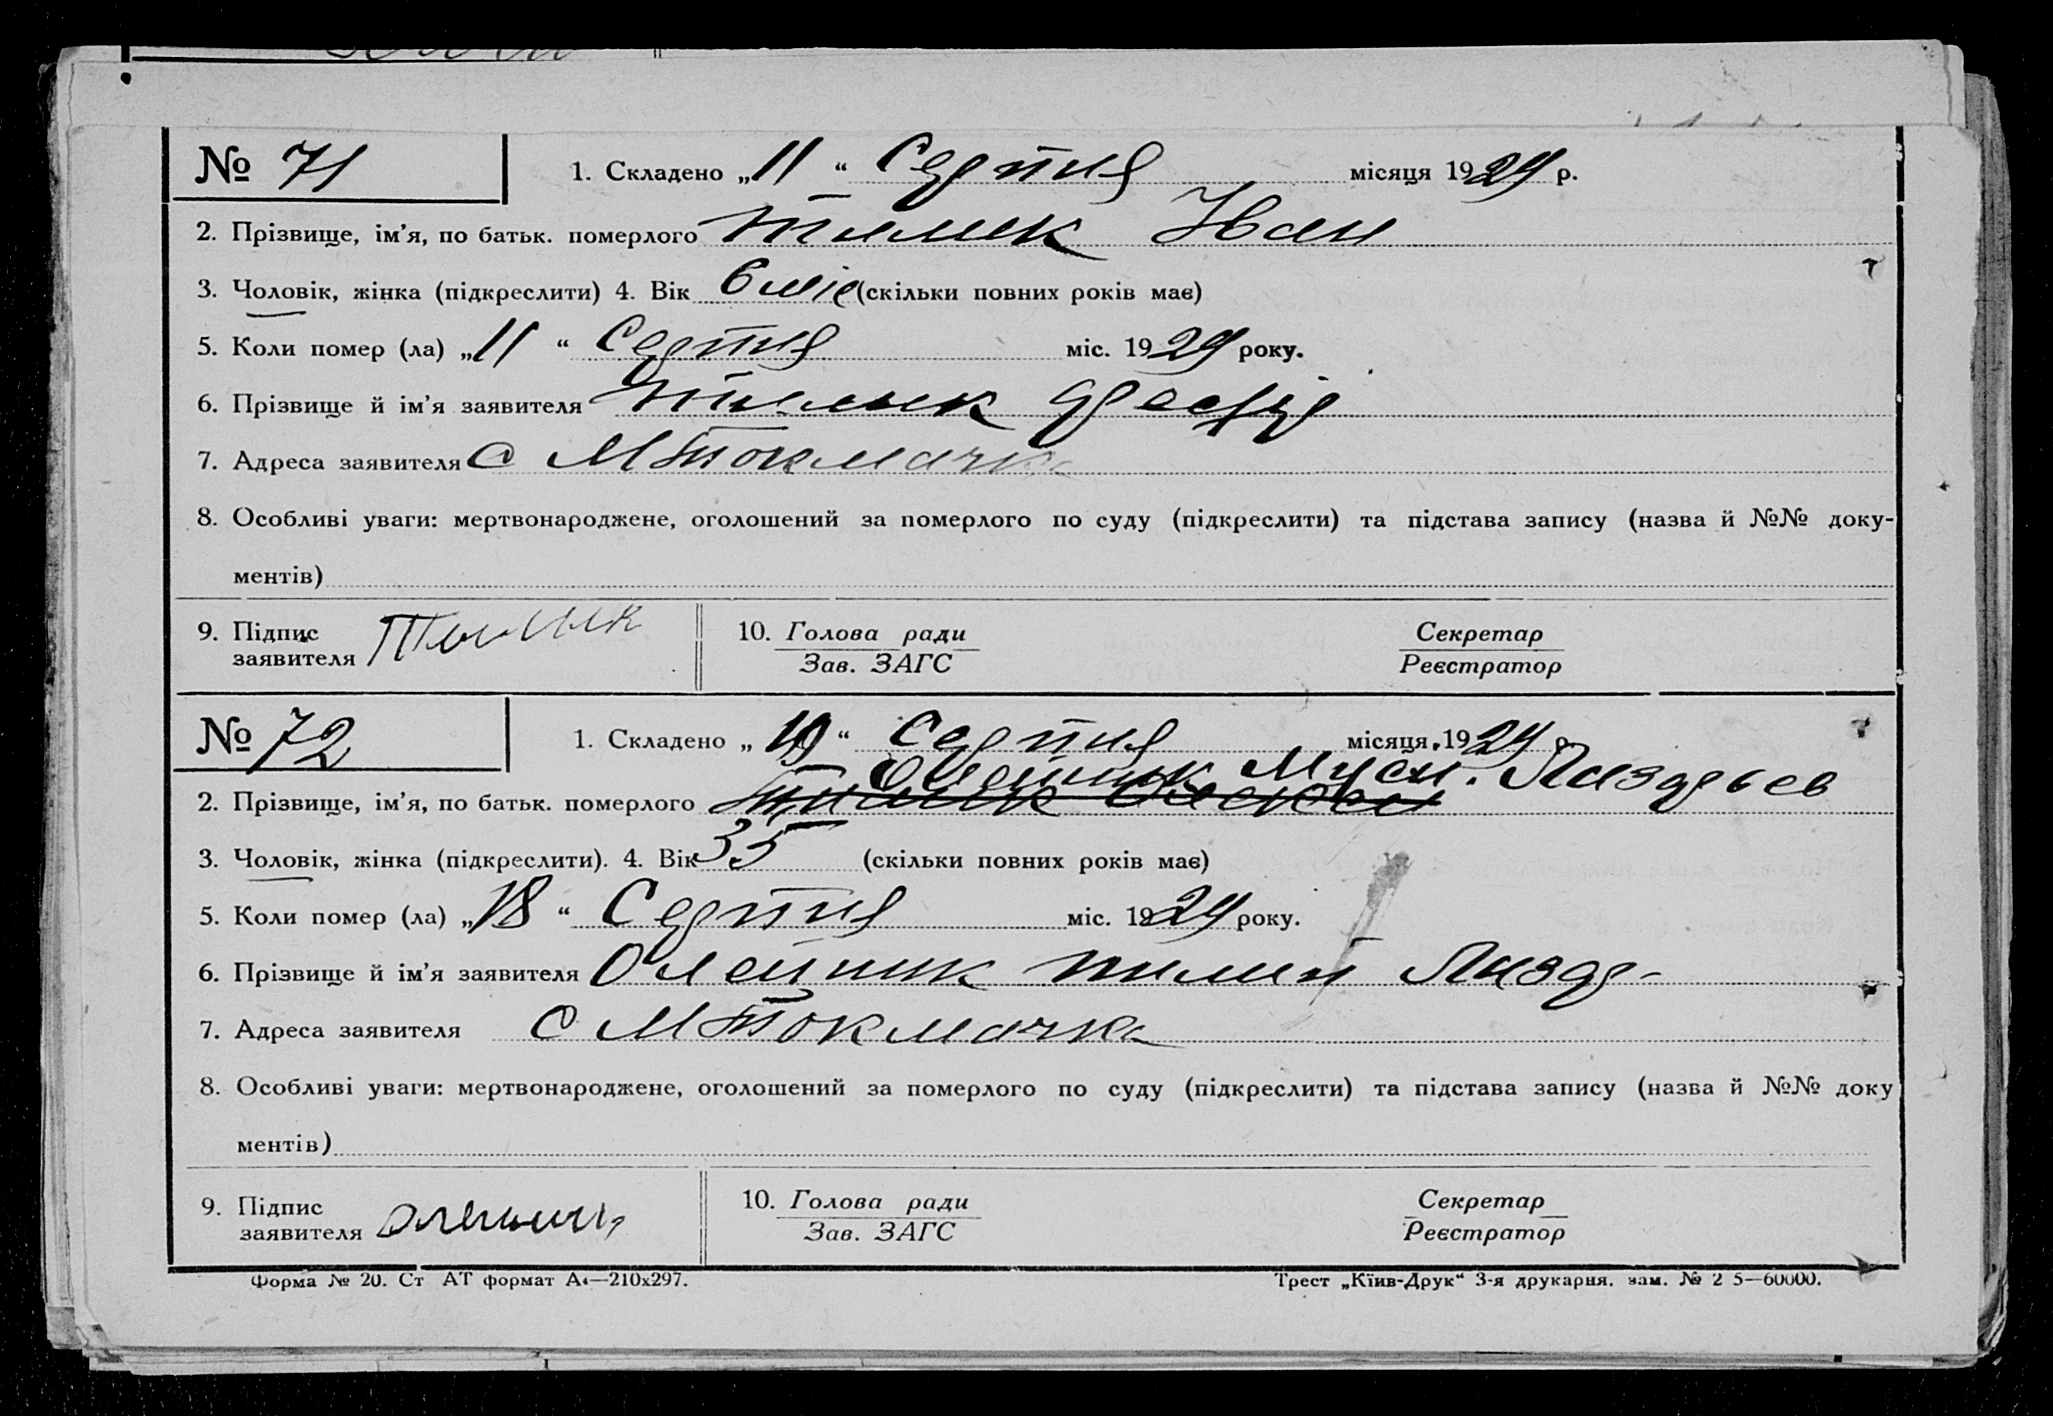 № 71 1. Складено „11“ Серпня місяця 1929 р.
2. Прізвище, ім’я, по батьк. померлого Тимик Иван
3. Чоловік, жінка (підкреслити) 4. Вік 6 міс (скільки повних років має)
5. Коли помер (ла) „11“ Серпня міс. 1929 року.
6. Прізвище й ім’я заявителя Тимик
7. Адреса заявителя с М Токмачка
8. Особливі уваги: мертвонароджене, оголошений за померлого по суду (підкреслити) та підстава запису (назва й №№ доку-
ментів)
9. Підпис 10. Голова ради Секретар
заявителя Зав. ЗАГС Реєстратор
№ 72 1. Складено „19“ Серпня місяця 1929 р
Олейник Муси.
2. Прізвище, ім’я, по батьк. померлого
3. Чоловік, жінка (підкреслити). 4. Вік 35 (скільки повних років має)
5. Коли помер (ла) „18“ Серпня міс. 1929 року.
6. Прізвище й ім’я заявителя Олейник
7. Адреса заявителя с М Токмачка
8. Особливі уваги: мертвонароджене, оголошений за померлого по суду (підкреслити) та підстава запису (назва й №№ доку
ментів)
9. Підпис 10. Голова ради Секретар
заявителя Зав. ЗАГС Реєстратор
Форма № 20. Ст АТ формат А4—210х297. Трест „Київ-Друк“ 3-я друкарня. зам. № 2 5—60000.